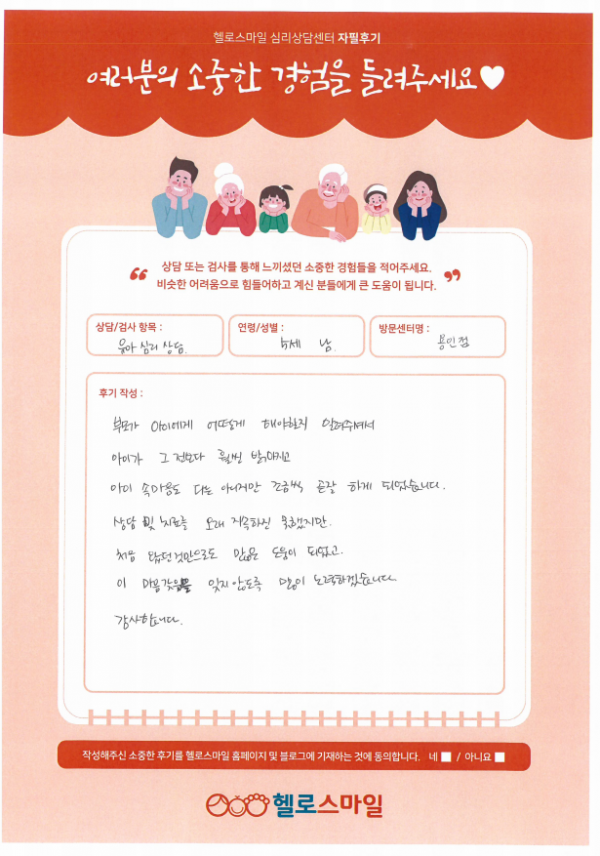 헬로스마일 심리상담센터 자필후기
여러분의 소중한 경험을 들려주세요
“ 상담 또는 검사를 통해 느끼셨던 소중한 경험들을 적어주세요.
비슷한 어려움으로 힘들어하고 계신 분들에게 큰 도움이 됩니다. ”
상담/검사 항목 : 유아 심리 상담.
연령/성별 : 5세 남.
방문센터명 : 용인점
후기 작성 :
부모가 아이에게 어떻게 해야할지 알려주셔서
아이가 그 전보다 훨씬 밝아지고
아이 속마음도 다는 아니지만 조금씩 곧잘 하게 되었습니다.
상담 및 치료를 오래 지속하진 못했지만.
처음 만으로도 많은 도움이 되었고.
이 마음가짐을 잊지 않도록 많이 노력하겠습니다
감사합니다.
작성해주신 소중한 후기를 헬로스마일 홈페이지 및 블로그에 기재하는 것에 동의합니다. 네 / 아니요
헬로스마일